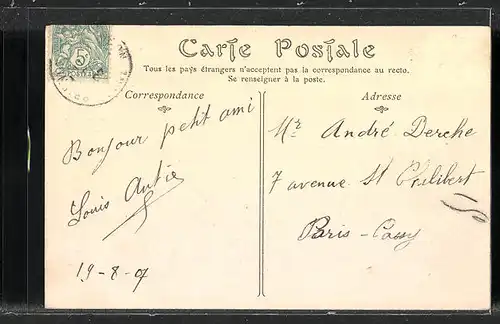 Carte Postale
Tous les pays étrangers n'acceptent pas la correspondance au recto.
Se renseigner à la poste.
Correspondance
Bonjour petit ami
Louis
19-8-07
Adresse
Mr André Derche
7 avenue St Philibert
Paris-Passy
5